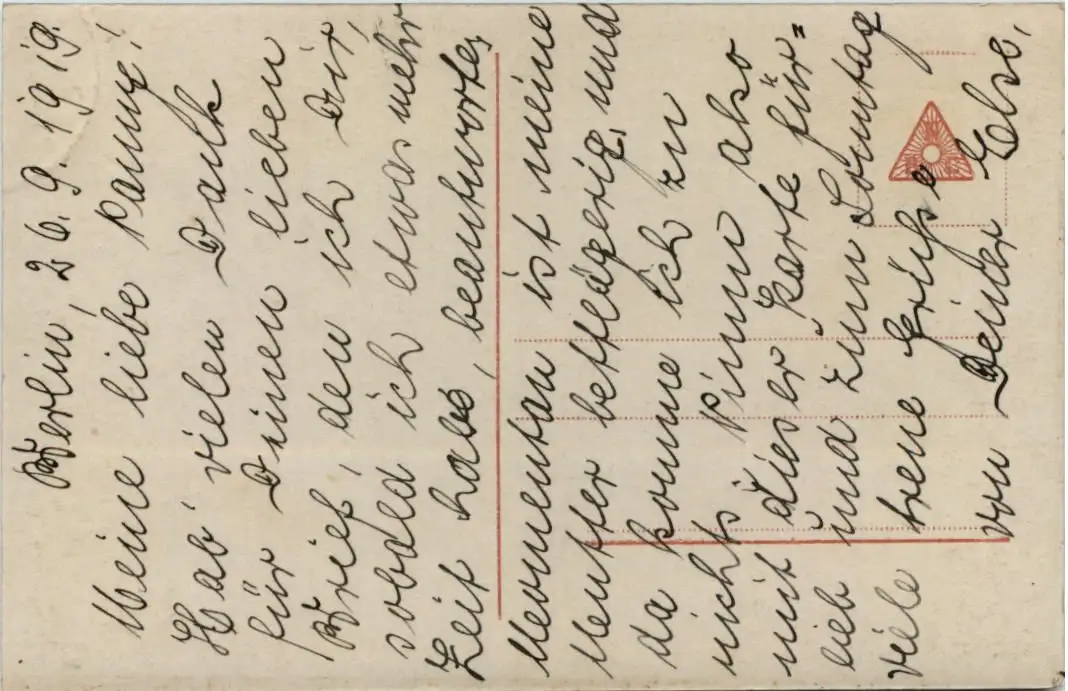 Berlin, 26. 9. 1919.
Meine liebe Hanny!
Hab' vielen Dank
für Deinen lieben
Brief, den ich Dir,
sobald ich etwas mehr
Zeit habe, beantworte.
Momentan ist meine
Mutter bettlägerig, und
da komme ich zu
nichts. Nimm also
mit dieser Karte für-
lieb und zum Sonntag
viele treue Grüsse
von Deiner Else.